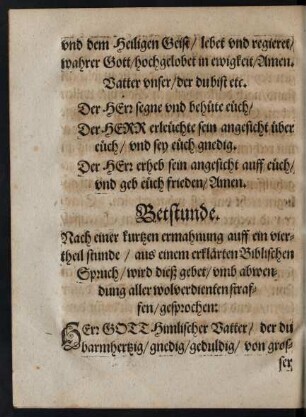 vnd dem Heiligen Geist / lebet vnd regieret /
wahrer Gott / hochgelobet in ewigkeit / Amen.
Vatter vnser / der du bist etc.
Der HErꝛ segne vnd behüte eüch /
Der HERR erleüchte sein angesicht über
eüch / vnd sey eüch gnedig.
Der HErꝛ erheb sein angesicht auff eüch /
vnd geb eüch frieden / Amen.
Betstunde.
Nach einer kurtzen ermahnung auff ein vier-
theil stunde / aus einem erklärten Biblischen
Spruch / wird dieß gebet / vmb abwen-
dung aller wolverdienten straf-
fen / gesprochen:
HErꝛ GOTT Himlischer Vatter / der du
barmhertzig / gnedig / geduldig / von gros-
ser